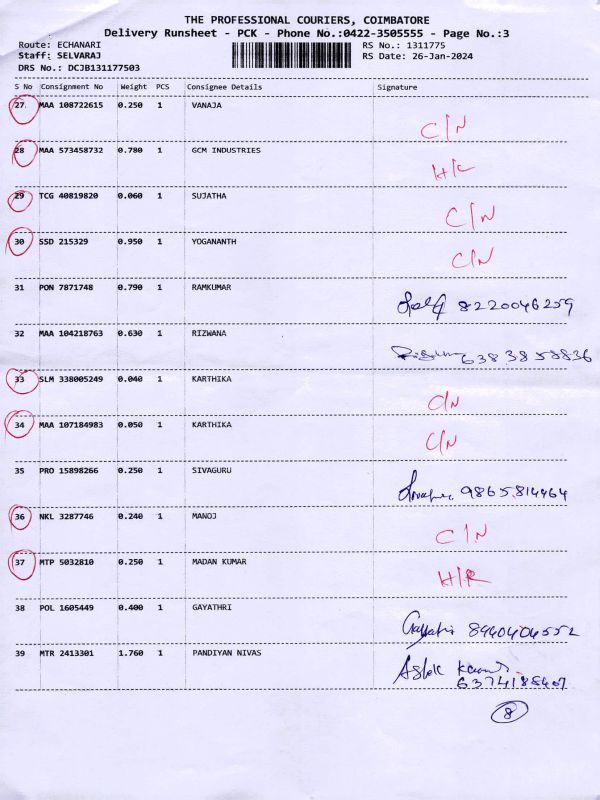 THE PROFESSIONAL COURIERS, COIMBATORE
Delivery Runsheet - PCK - Phone No.:0422-3505555 - Page No.:3
Route: ECHANARI RS No.: 1311775
Staff: SELVARAJ RS Date: 26-Jan-2024
DRS No.: DCJB131177503
S No Consignment No Weight PCS Consignee Details Signature
27 MAA 108722615 0.250 1 VANAJA
C/N
28 MAA 573458732 0.780 1 GCM INDUSTRIES
29 TCG 40819820 0.060 1 SUJATHA
C/N
30 SSD 215329 0.950 1 YOGANANTH
C/N
31 PON 7871748 0.790 1 RAMKUMAR
8220046259
32 MAA 104218763 0.630 1 RIZWANA
6383858836
33 SLM 338005249 0.040 1 KARTHIKA
C/N
34 MAA 107184983 0.050 1 KARTHIKA
C/N
35 PRO 15898266 0.250 1 SIVAGURU
9865814464
36 NKL 3287746 0.240 1 MANOJ
C/N
37 MTP 5032810 0.250 1 MADAN KUMAR
H/R
38 POL 1605449 0.400 1 GAYATHRI
Gayathri 8940404552
39 MTR 2413301 1.760 1 PANDIYAN NIVAS
Ashok Kumar
6374188407
8